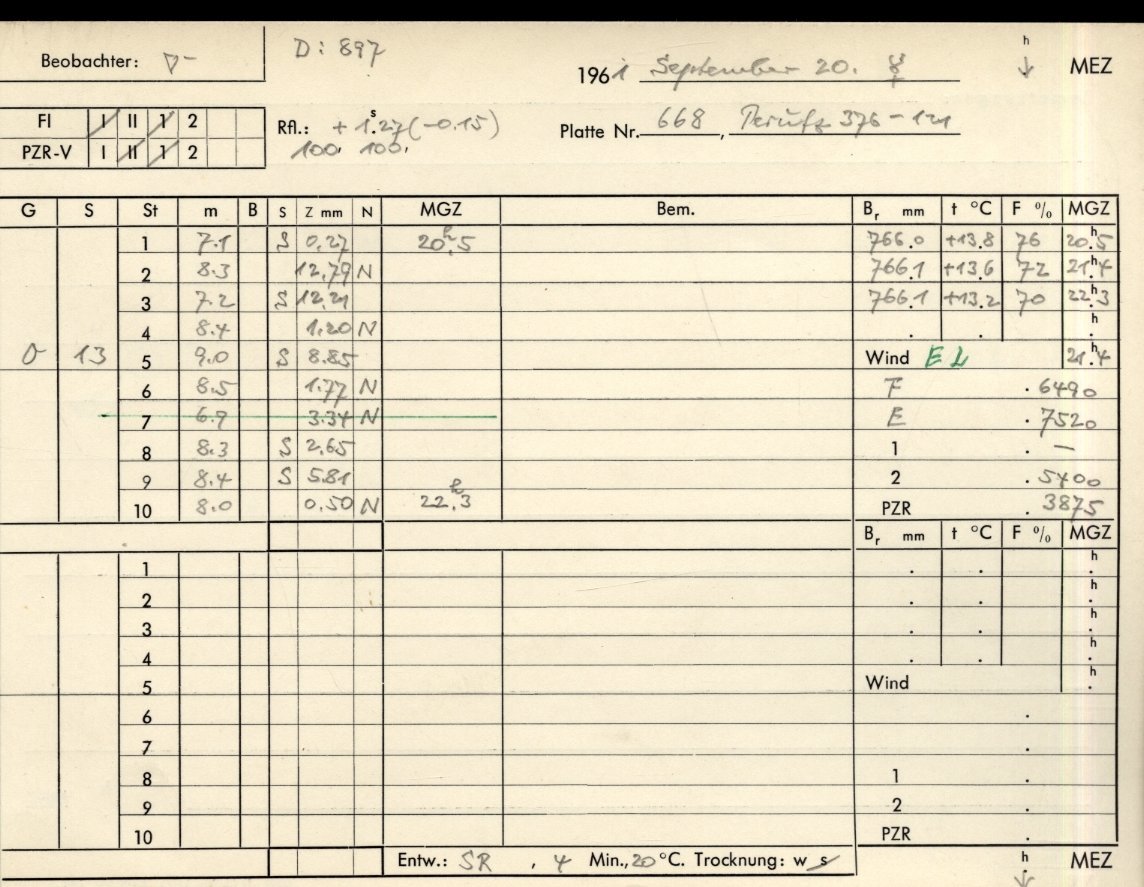 Beobachter: D: 897 1961 September 20. ☿ h MEZ
FI I II 1 2 Rfl.: + 1.27 (-0.15) Platte Nr. 668, Perutz 376 - 121
PZR-V I II 1 2 100. 100.
G S St m B S Z mm N MGZ Bem. Br mm t °C F % MGZ
1 7.1 S 0.27 20h.5 766.0 +13.8 76 20h.5
2 8.3 12.79 N 766.1 +13.6 72 21h.4
3 7.2 S 12.21 766.1 +13.2 70 22h.3
4 8.4 1.20 N . . h
13 5 9.0 S 8.85 Wind E 21h.4
6 8.5 1.77 N F .6490
7 6.9 3.34 N E .7520
8 8.3 S 2.65 1 . —
9 8.4 S 5.81 2 .5400
10 8.0 0.50 N 22h.3 PZR .3875
Br mm t °C F % MGZ
1 . . h.
2 . . h.
3 . . h.
4 . . h.
5 Wind h.
6 .
7 .
8 1 .
9 2 .
10 PZR .
Entw.: SR , 4 Min., 20 °C. Trocknung: w s h MEZ